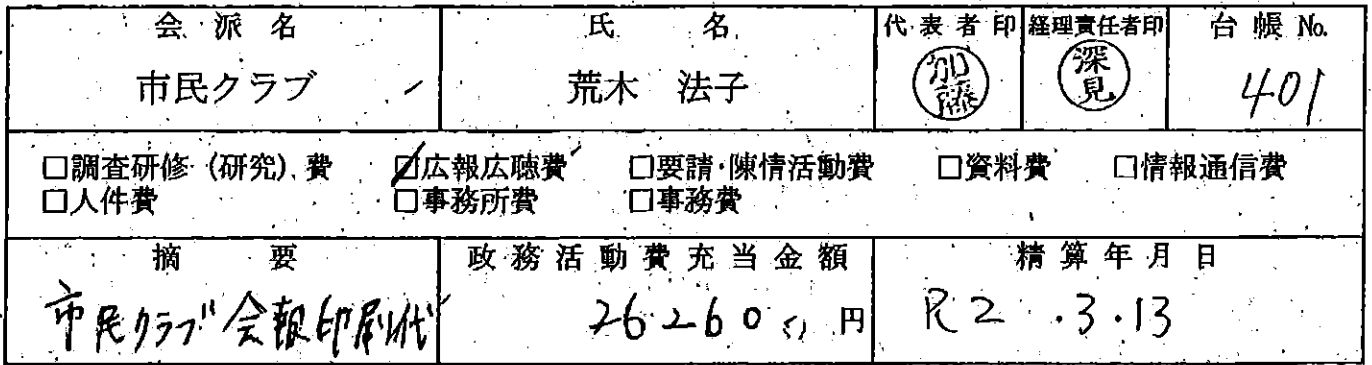 会派名 氏名 代表者印 経理責任者印 台帳 No.
市民クラブ 荒木 法子 加藤 深見 401
□調査研修(研究)費 ☑広報広聴費 □要請・陳情活動費 □資料費 □情報通信費
□人件費 □事務所費 □事務費
摘要 政務活動費充当金額 精算年月日
市民クラブ会報印刷代 26260 円 R2.3.13